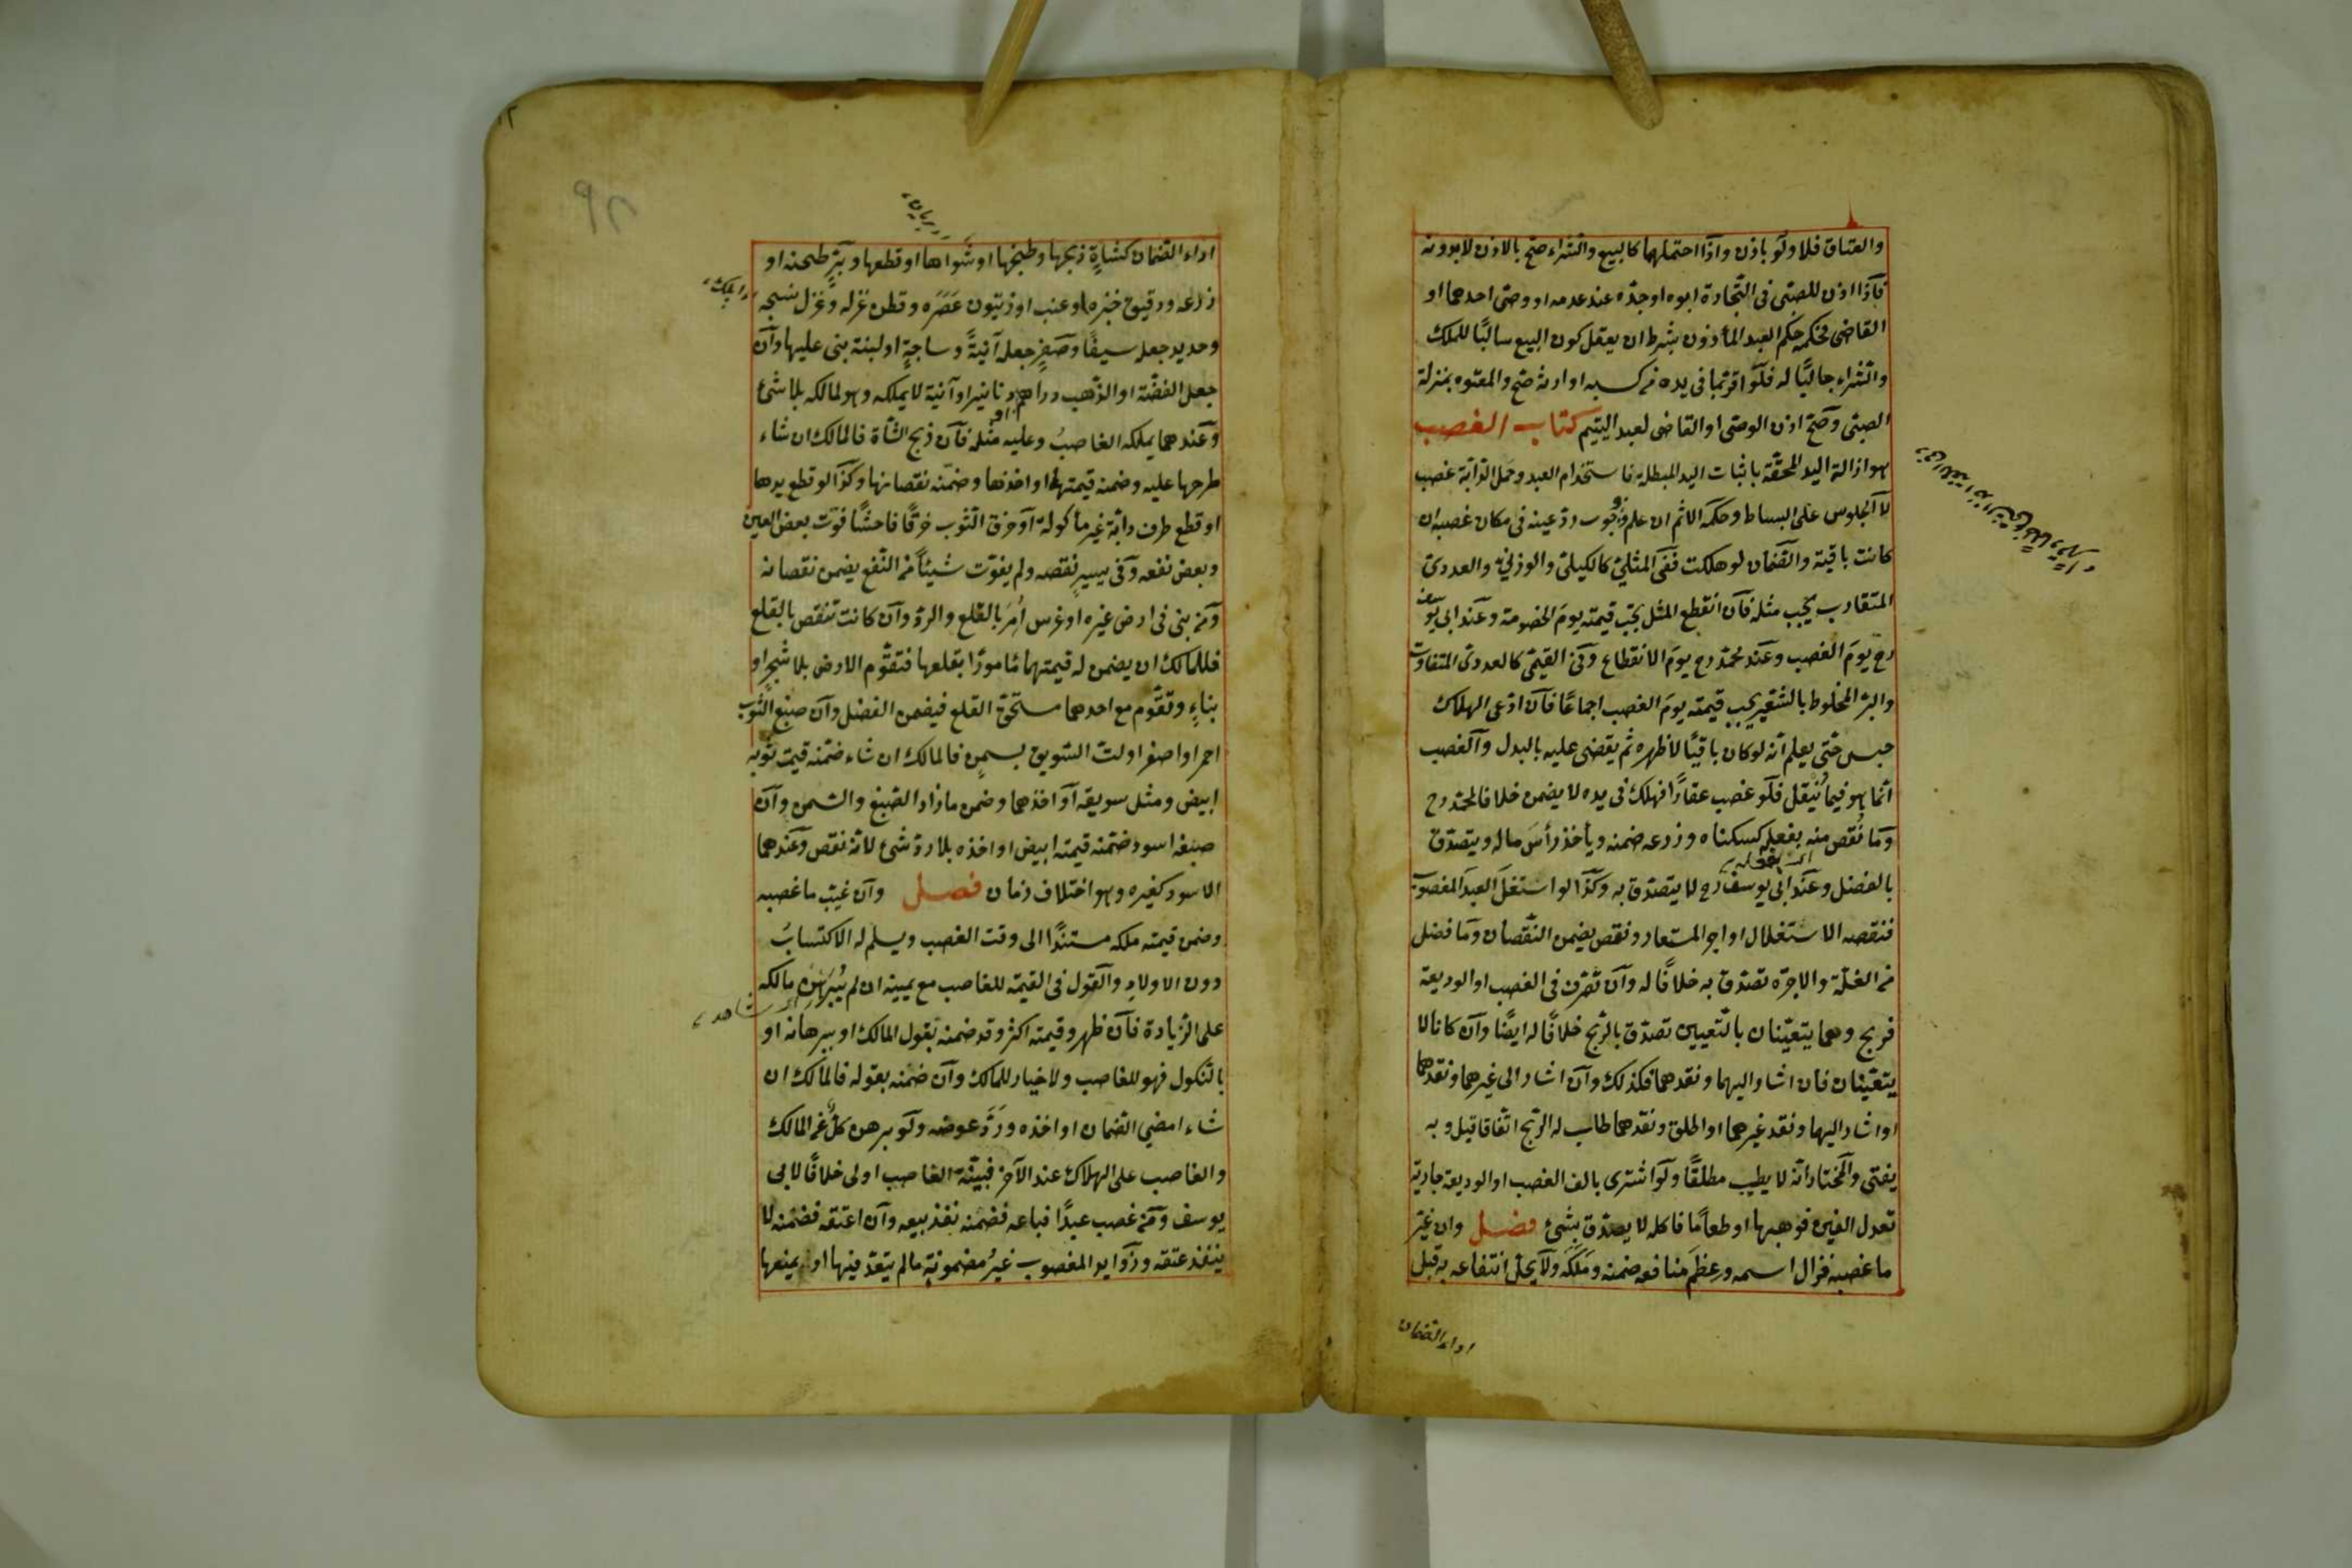 والعتاق فلا ولو باذن واذا احتملهما كالبيع والشراء صح بالاذن لا بدونه
فاذا اذن للصبى فى التجارة ابوه او جده عند عدمه او وصى احدهما او
القاضى فحكمه حكم العبد المأذون بشرط ان يعقل كون البيع سالبًا للملك
والشراء جالبًا له فلو اقر بما فى يده من كسبه او ارثه صح والمعتوه بمنزلة
الصبى وصح اذن الوصى او القاضى لعبد اليتيم كتاب الغصب
هو ازالة اليد المحقة باثبات اليد المبطلة فاستخدام العبد وحمل الدابة غصب
لا الجلوس على البساط وحكمه الاثم ان علم ووجوب رد عينه فى مكان غصبه ان
كانت باقية والضمان لو هلكت ففى المثلى كالكيلى والوزنى والعددى
المتقارب يجب مثله فان انقطع المثل يجب قيمته يوم الخصومة وعند ابى يوسف
رح يوم الغصب وعند محمد رح يوم الانقطاع وفى القيمى كالعددى المتفاوت
والبر المخلوط بالشعير يجب قيمته يوم الغصب اجماعًا فان ادعى الهلاك
حبس حتى يعلم انه لو كان باقيًا لاظهره ثم يقضى عليه بالبدل والغصب
انما هو فيما ينقل فلو غصب عقارًا فهلك فى يده لا يضمن خلافا لمحمد رح
وما نقص منه بفعله كسكناه وزرعه ضمنه ويأخذ رأس ماله ويتصدق
بالفضل وعند ابى يوسف رح لا يتصدق به وكذا لو استغل العبد المغصوب
فنقصه الاستغلال او اجر المستعار ونقص يضمن النقصان وما فضل
من الغلة والاجرة تصدق به خلافًا له وان تصرف فى الغصب او الوديعة
فربح وهما يتعينان بالتعيين تصدق بالربح خلافًا له ايضًا وان كانا لا
يتعينان فان اشار اليهما ونقدهما فكذلك وان اشار الى غيرهما ونقدهما
او اشار اليها ونقد غيرهما او اطلق ونقدهما طاب له الربح اتفاقا قيل وبه
يفتى والمختار انه لا يطيب مطلقًا ولو اشترى بالف الغصب او الوديعة جارية
تعدل الفين فوهبها او طعامًا فاكله لا يصدق بشئ فصل وان غير
ما غصبه فزال اسمه وعظم منافعه ضمنه وملكه ولا يحل انتفاعه به قبل
اداء الضمان
اداء الضمان كشاة ذبحها وطبخها او شواها او قطعها وبر طحنه او
زرعه ودقيق خبزه او عنب او زيتون عصره وقطن غزله وغزل نسجه
وحديد جعله سيفًا وصفر جعله آنيةً وساجة او لبنة بنى عليها وان
جعل الفضة او الذهب دراهم او دنانير او آنية لا يملكه وهو لمالكه بلا شئ
وعندهما يملكه الغاصب وعليه مثله فان ذبح الشاة فالمالك ان شاء
طرحها عليه وضمنه قيمتها او اخذها وضمنه نقصانها وكذا لو قطع يدها
او قطع طرف دابة غير مأكولة او خرق الثوب خرقًا فاحشًا فوت بعض العين
وبعض نفعه وفى يسير نقصه ولم يفوت شيئًا من النفع يضمن نقصانه
ومن بنى فى ارض غيره او غرس امر بالقلع والرد وان كانت تنقص بالقلع
فللمالك ان يضمن له قيمتهما مامورًا بقلعها فتقوم الارض بلا شجر او
بناء وتقوم مع احدهما مستحق القلع فيضمن الفضل وان صبغ الثوب
احمر او اصفر او لت السويق بسمن فالمالك ان شاء ضمنه قيمة ثوبه
ابيض ومثل سويقه او اخذهما وضمن ما زاد الصبغ والسمن وان
صبغه اسود ضمنه قيمته ابيض او اخذه بلا رد شئ لانه نقص وعندهما
الاسود كغيره وهو اختلاف زمان فصل وان غيب ما غصبه
وضمن قيمته ملكه مستندًا الى وقت الغصب ويسلم له الاكتساب
دون الاولاد والقول فى القيمة للغاصب مع يمينه ان لم يبرهن مالكه
على الزيادة فان ظهر وقيمته اكثر وقد ضمنه بقول المالك او ببرهانه او
بالنكول فهو للغاصب ولا خيار للمالك وان ضمنه بقوله فالمالك ان
شاء امضى الضمان او اخذه ورد عوضه ولو برهن كل من المالك
والغاصب على الهلاك عند الآخر فبينة الغاصب اولى خلافًا لابى
يوسف ومن غصب عبدًا فباعه فضمنه نفذ بيعه وان اعتقه فضمنه لا
ينفذ عتقه وزوايد المغصوب غير مضمونة ما لم يتعد فيها او يمنعها